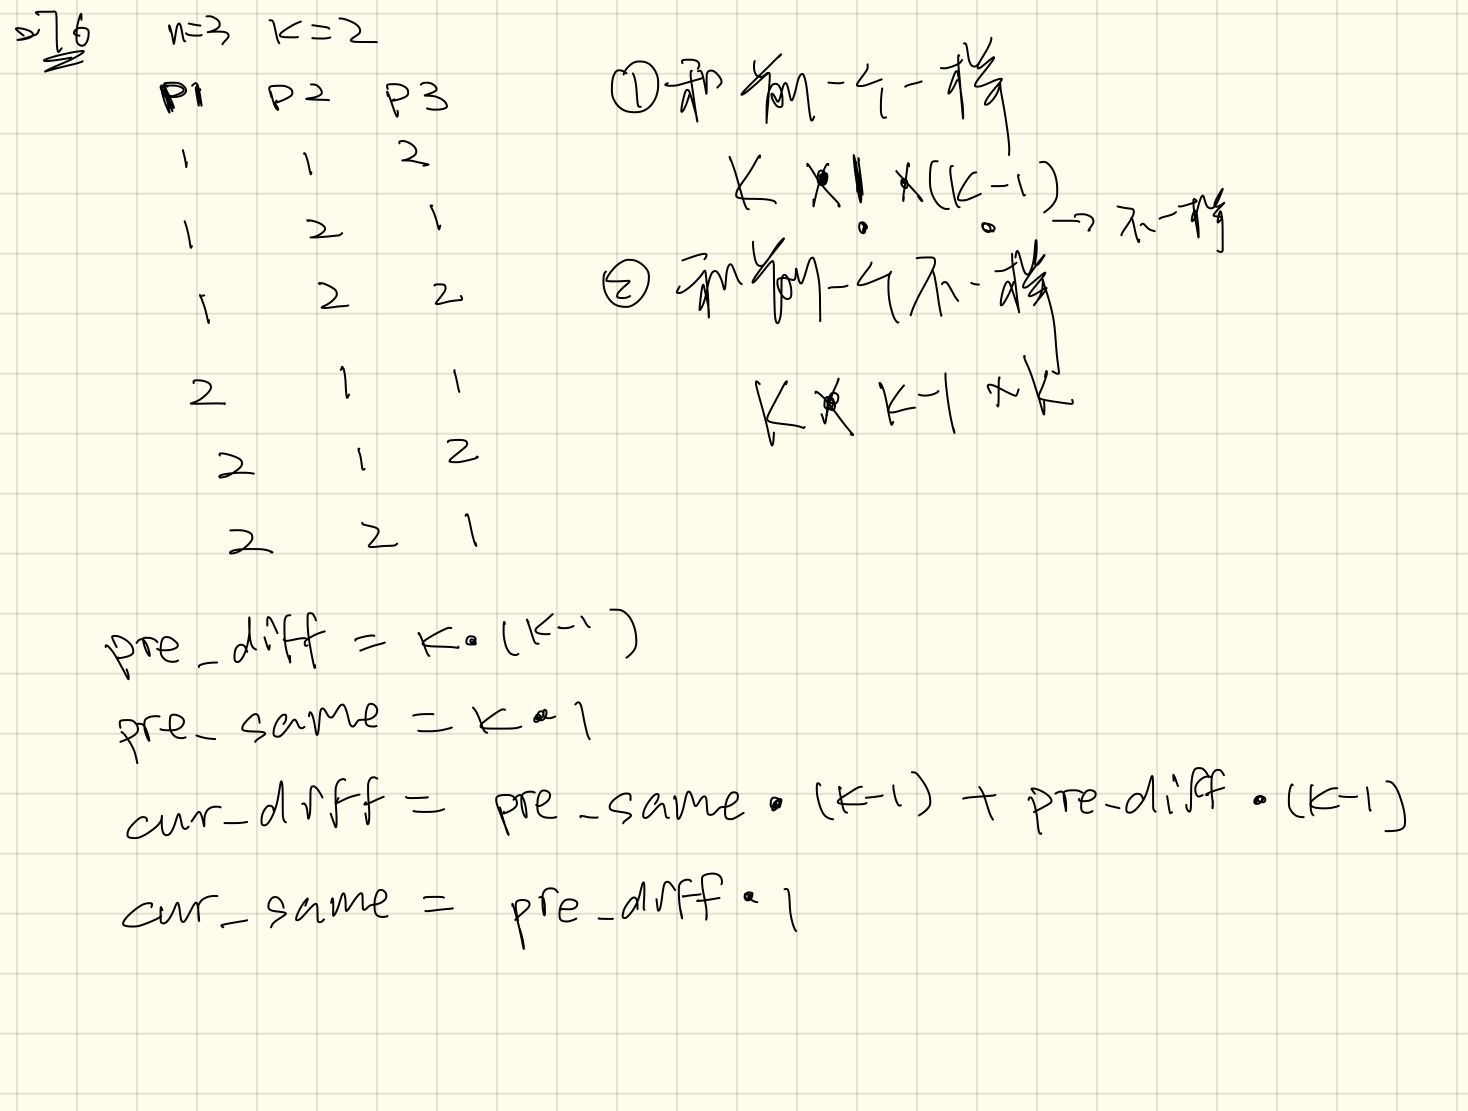 276 n=3 K=2
P1 P2 P3
1 1 2
1 2 1
1 2 2
2 1 1
2 1 2
2 2 1
① 和前一个一样
K × 1 × (K-1) → 不一样
② 和前一个不一样
K × K-1 × K
pre_diff = K·(K-1)
pre_same = K·1
cur_diff = pre_same·(K-1) + pre_diff·(K-1)
cur_same = pre_diff·1